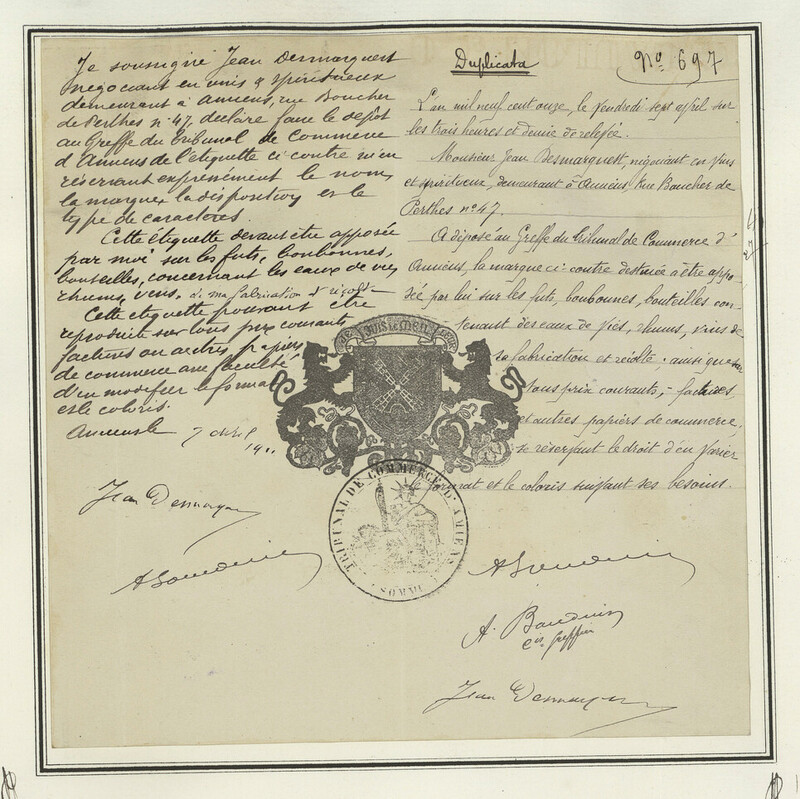 Je soussigné Jean Desmarquest
négociant en vins & spiritueux
demeurant à Amiens, rue Boucher
de Perthes n° 47, déclare faire le dépôt
au Greffe du tribunal de Commerce
d'Amiens de l'étiquette ci contre m'en
réservant expressément le nom,
la marque, la disposition et le
type de caractères.
Cette étiquette devant être apposée
par moi sur les fûts, bonbonnes,
bouteilles, concernant les eaux de vie,
rhums, vins, de ma fabrication & récolte
Cette étiquette pouvant être
reproduite sur tous prix courants
factures ou autres papiers
de commerce avec faculté
d'en modifier le format
et le coloris.
Amiens le 7 avril
1911
Jean Desmarquest
Duplicata
N° 697
L'an mil neuf cent onze, le vendredi sept avril sur
les trois heures et demie de relevée.
Monsieur Jean Desmarquest, négociant en vins
et spiritueux, demeurant à Amiens, Rue Boucher de
Perthes n° 47.
A déposé au Greffe du Tribunal de Commerce d'
Amiens, la marque ci contre destinée à être appo-
sée par lui sur les fûts, bonbonnes, bouteilles con-
tenant des eaux de vies, rhums, vins de
sa fabrication et récolte; ainsi que sur
tous prix courants, factures
et autres papiers de commerce,
se réservant le droit d'en varier
le format et le coloris suivant ses besoins.
TRIBUNAL DE COMMERCE D'AMIENS
(SOMME)
A. Baudouin
Cis Greffier
Jean Desmarquest